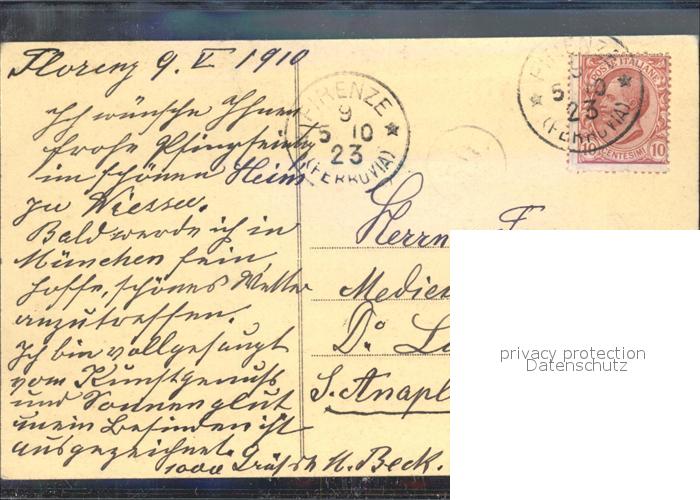 Florenz 9. V 1910
Ich wünsche Ihnen
frohe Pfingsten
im schönen Heim
zu Wiessee.
Bald werde ich in
München sein
hoffe, schönes Wetter
anzutreffen.
Ich bin vollgesaugt
vom Kunstgenuss
und Sonnenglut
mein Befinden ist
ausgezeichnet.
1000 Grüße M. Beck.
FIRENZE
9
5 10
23
(FERROVIA)
FIRENZE
5 10
23
(FERROVIA)
POSTE ITALIANE
10 CENTESIMI 10
Herrn
Medici
Dr.
S. Anapl
privacy protection
Datenschutz